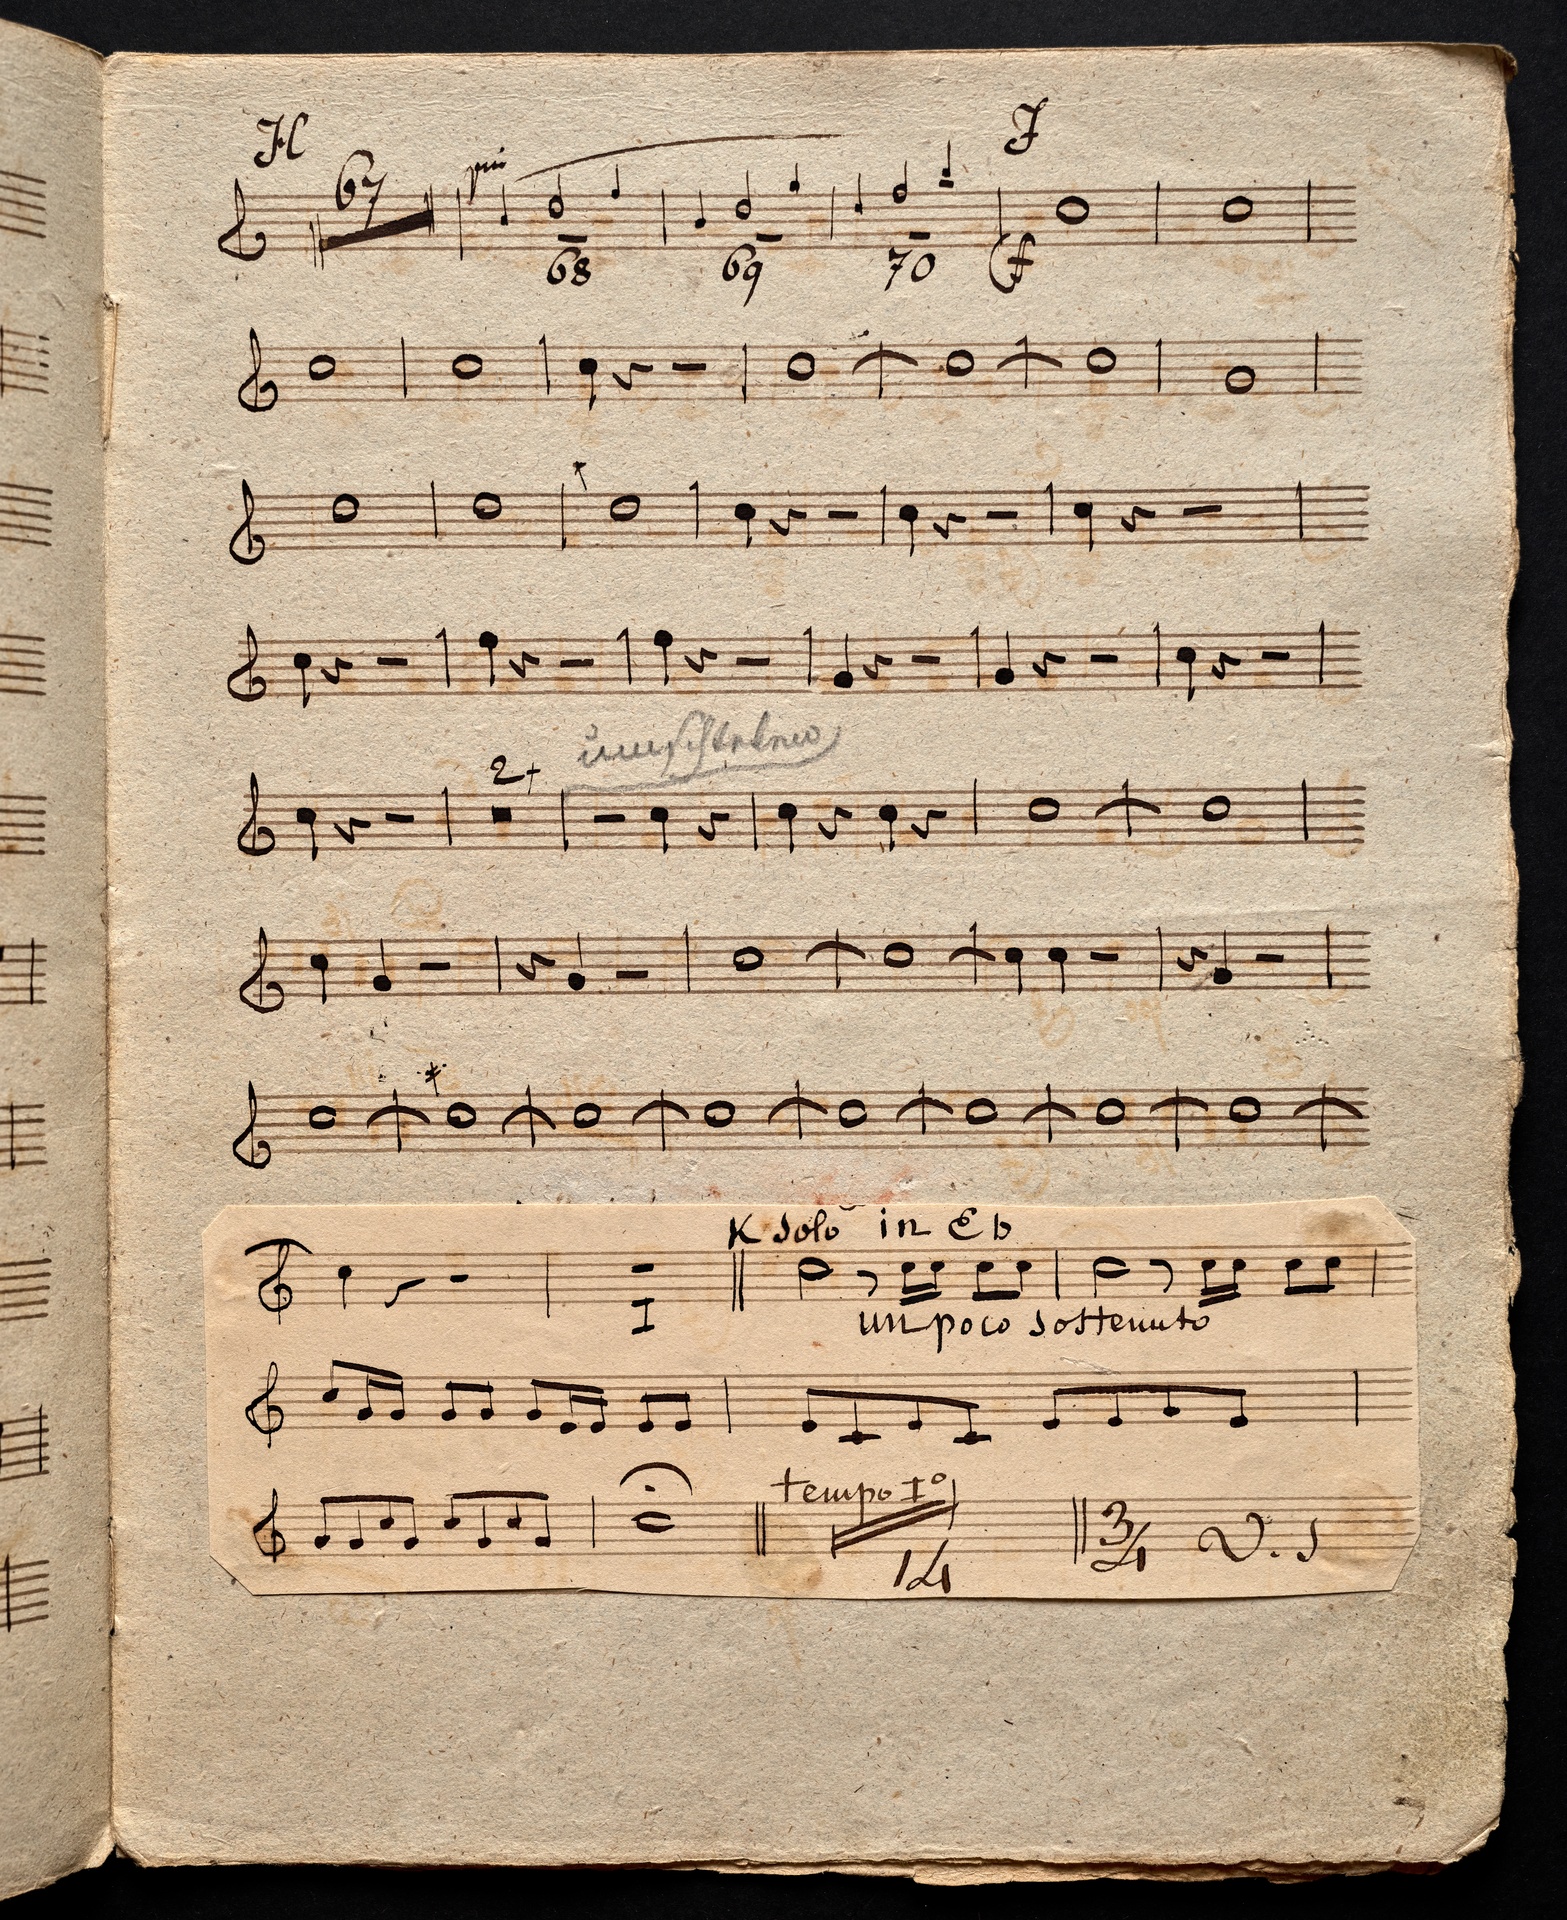 H J
67
68 69 70 f
2
K solo in Eb
I
un poco sostenuto
tempo Iº
14 3/4 V. s